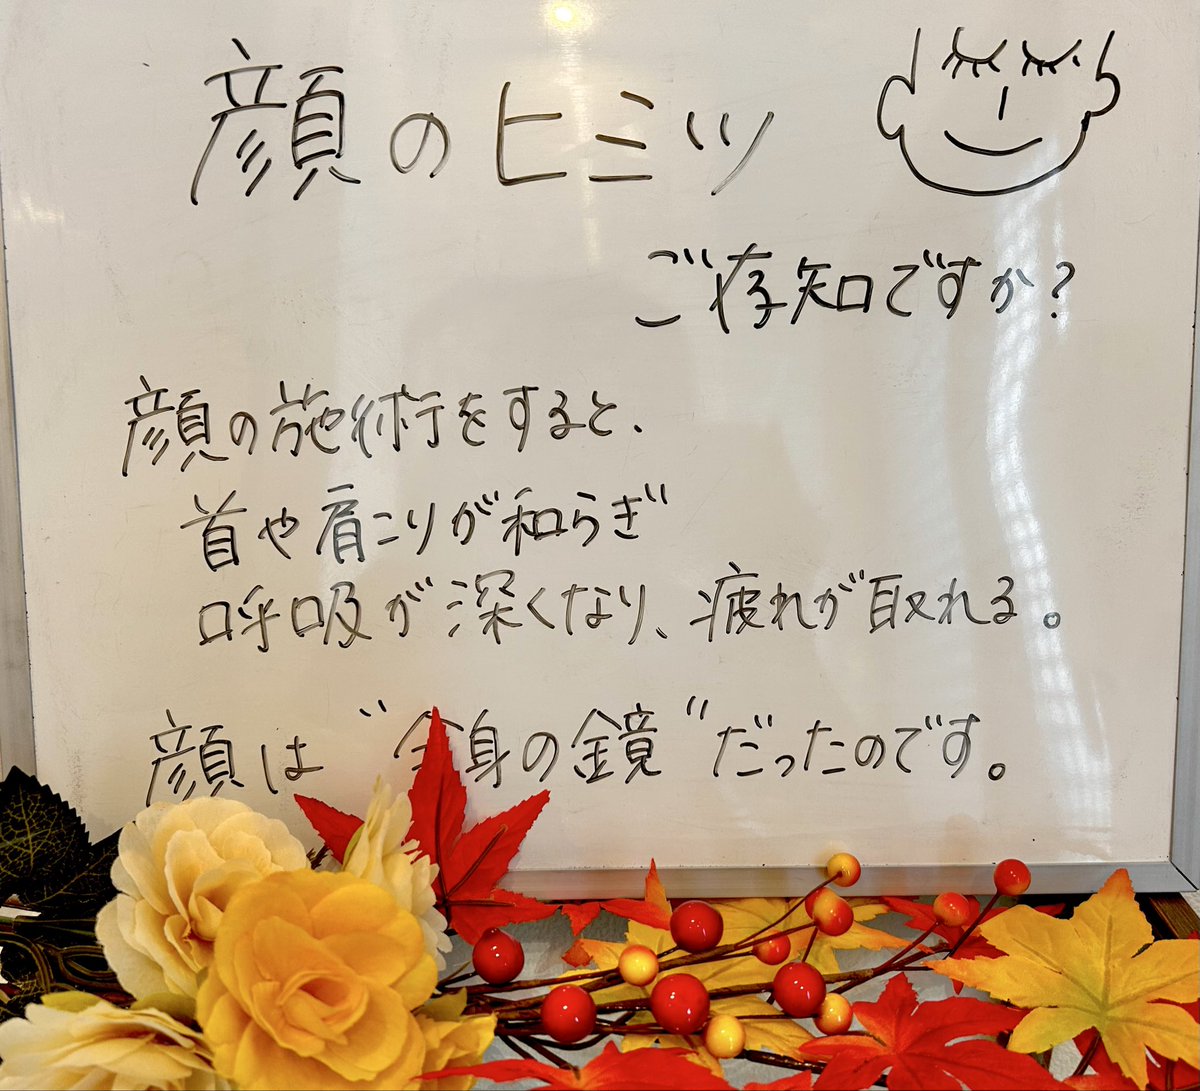 顔のヒミツ
ご存知ですか?
顔の施術をすると、
首や肩こりが和らぎ
呼吸が深くなり、疲れが取れる。
顔は"全身の鏡"だったのです。